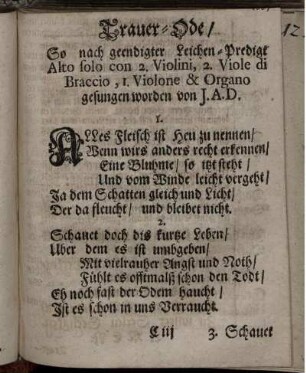 12
Trauer-Ode/
So nach geendigter Leichen-Predigt
Alto solo con 2. Violini, 2. Viole di
Braccio, 1. Violone & Organo
gesungen worden von J.A.D.
1.
ALLes Fleisch ist Heu zu nennen/
Wenn wirs anders recht erkennen/
Eine Bluhme/ so itzt steht/
Und vom Winde leicht vergeht/
Ja dem Schatten gleich und Licht/
Der da fleucht/ und bleibet nicht.
2.
Schauet doch dis kurtze Leben/
Uber dem es ist umbgeben/
Mit vielrauher Angst und Noth/
Fühlt es offtmalß schon den Todt/
Eh noch fast der Odem haucht/
Ist es schon in uns Verraucht.
C iij 3. Schauet